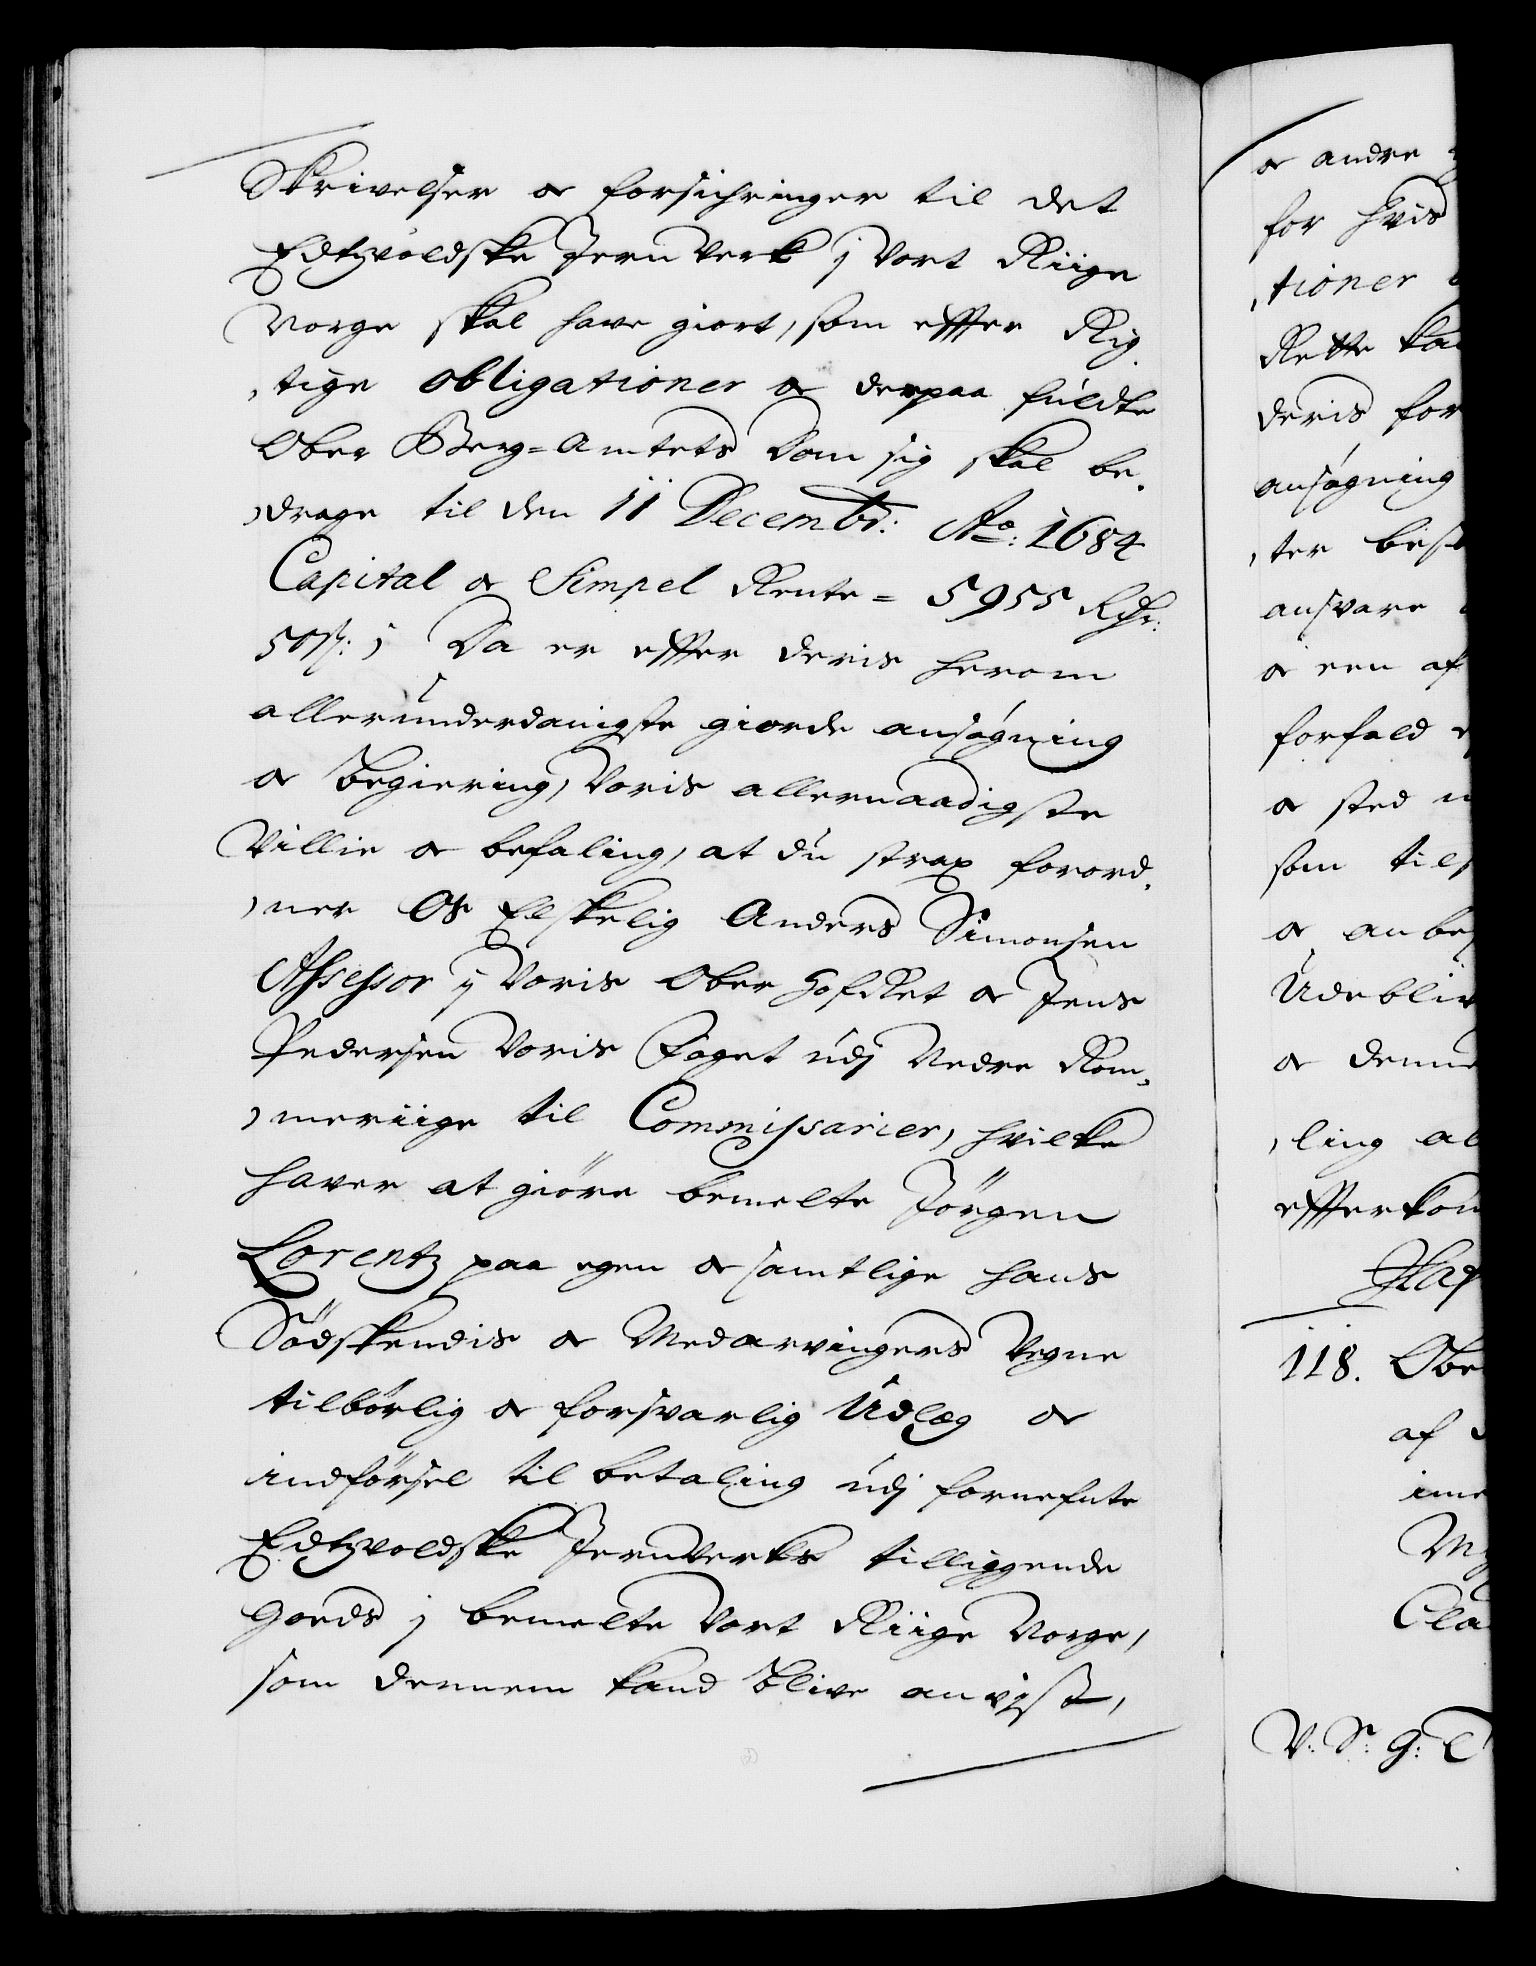 Skrivelser oc forsichringer til det
Edtzvoldske Jern Verk j Vort Riige
Norge skal have giort, som effter Rig,
,tige obligationer oc derpaa fuldte
Ober Berg=Amtets Dom sig skal be,
,drage til den 11 Decembr: Ao: 1684
Capital oc Simpel Rente = 5955 Rdr:
50 ß: ; Da er effter deris herom
allerunderdanigste giorde ansøgning
oc begiering, Voris allernaadigste
Villie oc befaling, at du strax forord,
,ner Os Elskelig Anders Simonsen
Assessor j Voris Ober Hof Ret oc Jens
Pedersen Voris Foget udj Nedre Rom,
,meriige til Commissarier, hvilke
haver at giöre bemelte Jörgen
Lorentz paa egen oc samtlige hans
Södskendis oc Medarvingers Vegne
tilbörlig oc forsvarlig Udlæg oc
indförsel til betaling udj fornefnte
Edtzvoldske Jernverks tilliggende
Goeds j bemelte Vort Riige Norge,
som dennem kand blive anvjst,
oc andre
for hvis
,tioner
Rette
deris for
ansøgning
,ter
ansvare
oc een af
forfald
oc sted
som
oc
oc
,ling
118.
af
V: Sr: G: